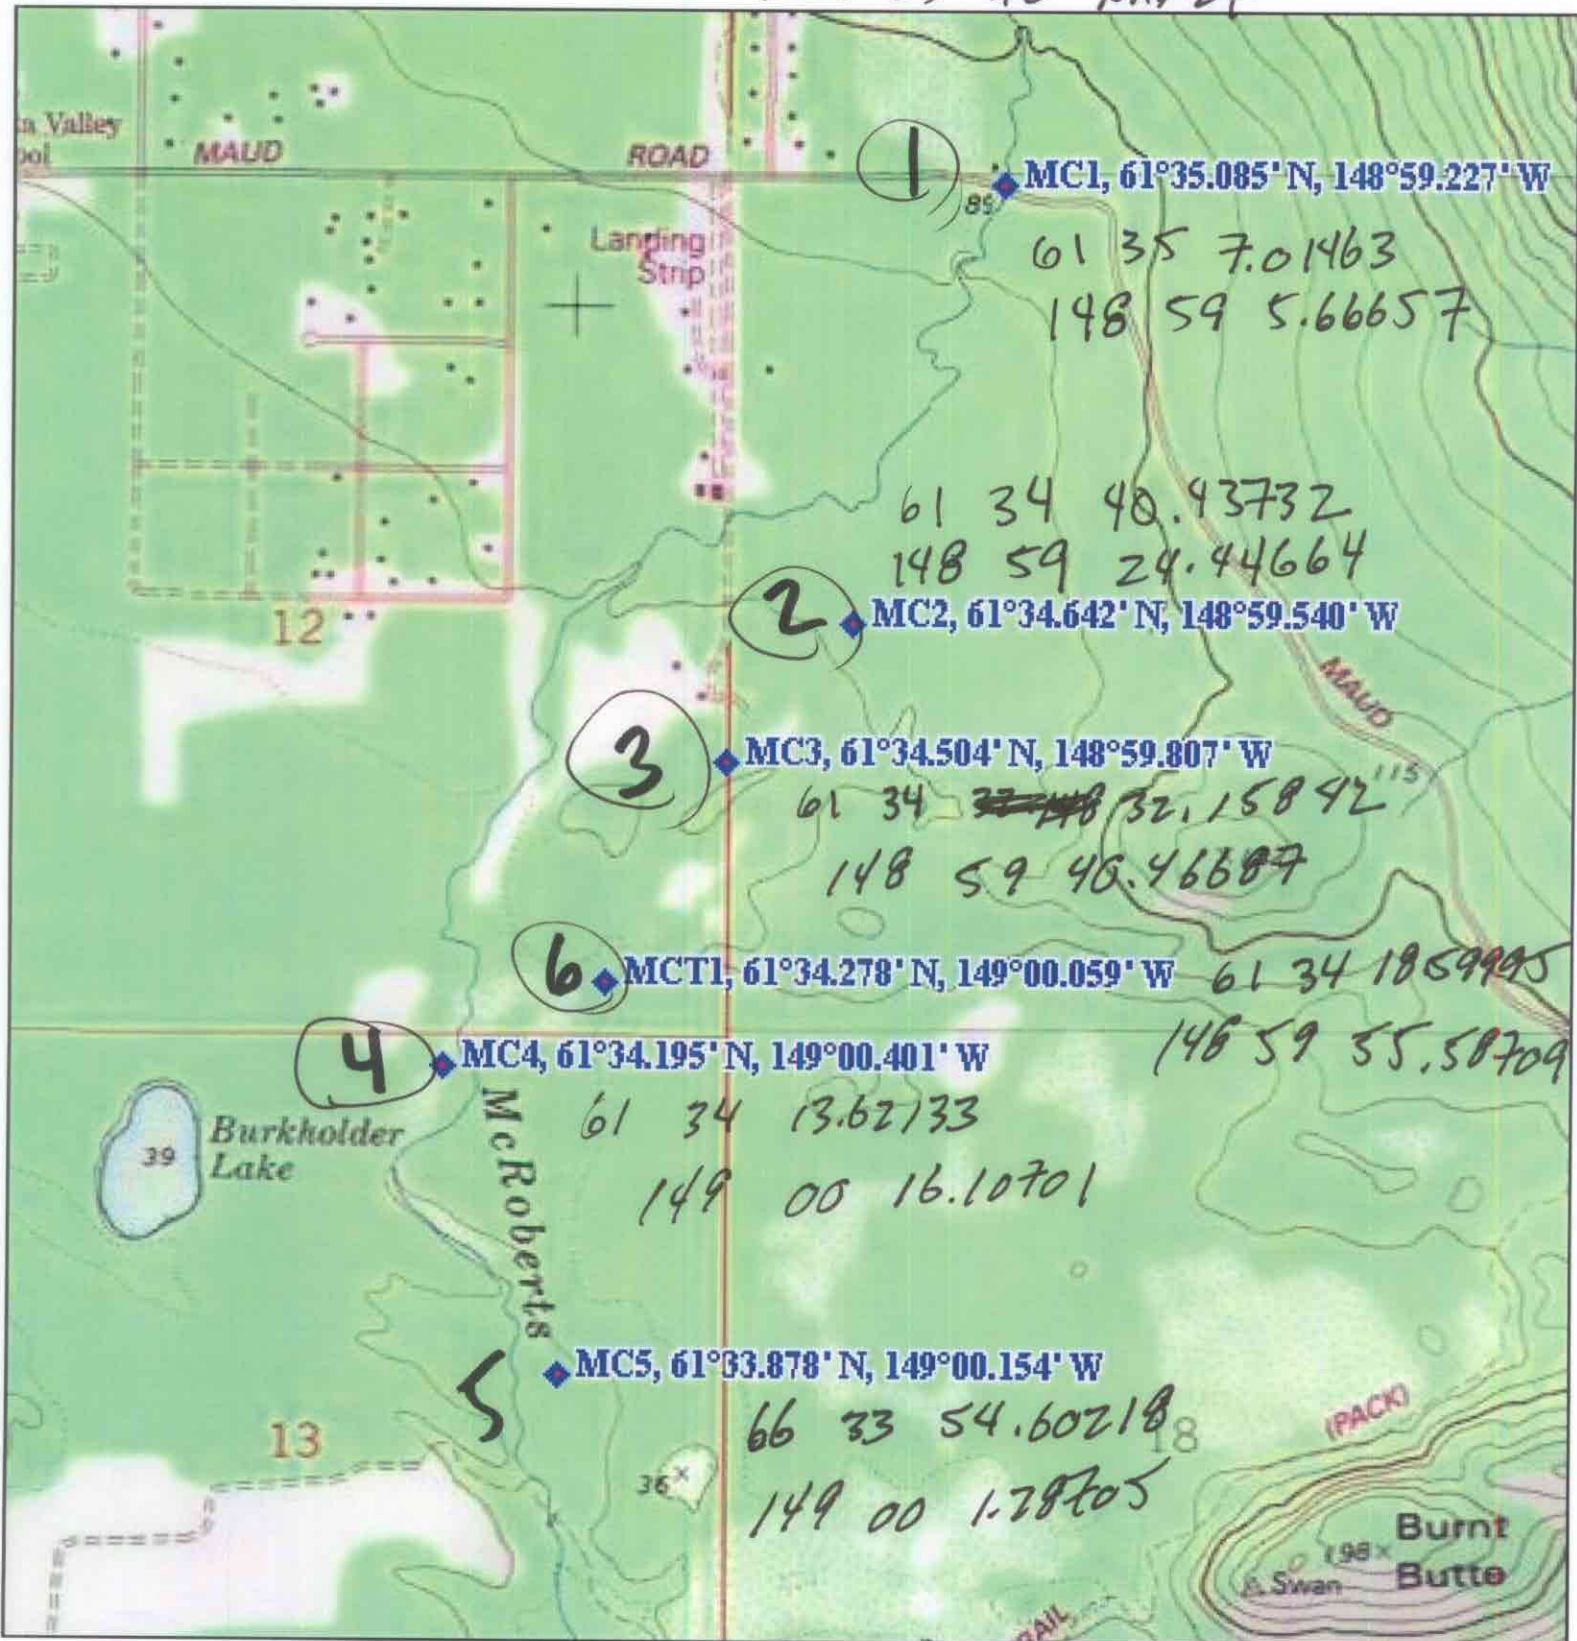 a Valley
ool
MAUD ROAD
1
MC1, 61°35.085' N, 148°59.227' W
89
61 35 7.01463
148 59 5.66657
Landing
Strip
61 34 40.43732
148 59 24.44664
2
MC2, 61°34.642' N, 148°59.540' W
12
MAUD
3
MC3, 61°34.504' N, 148°59.807' W
115
61 34 32.15842
148 59 40.46687
6
MCT1, 61°34.278' N, 149°00.059' W
61 34 1859995
148 59 55.58709
4
MC4, 61°34.195' N, 149°00.401' W
61 34 13.62133
149 00 16.10701
39
Burkholder
Lake
McRoberts
MC5, 61°33.878' N, 149°00.154' W
5
66 33 54.60218
149 00 1.28705
13
18
(PACK)
36
Burnt
198
Butte
Swan
RAIL